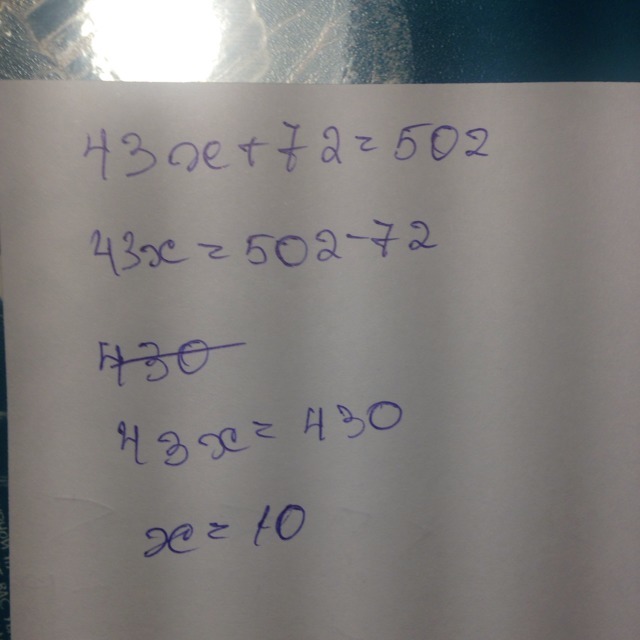 43x+72=502
43x=502-72
430
43x=430
x=10